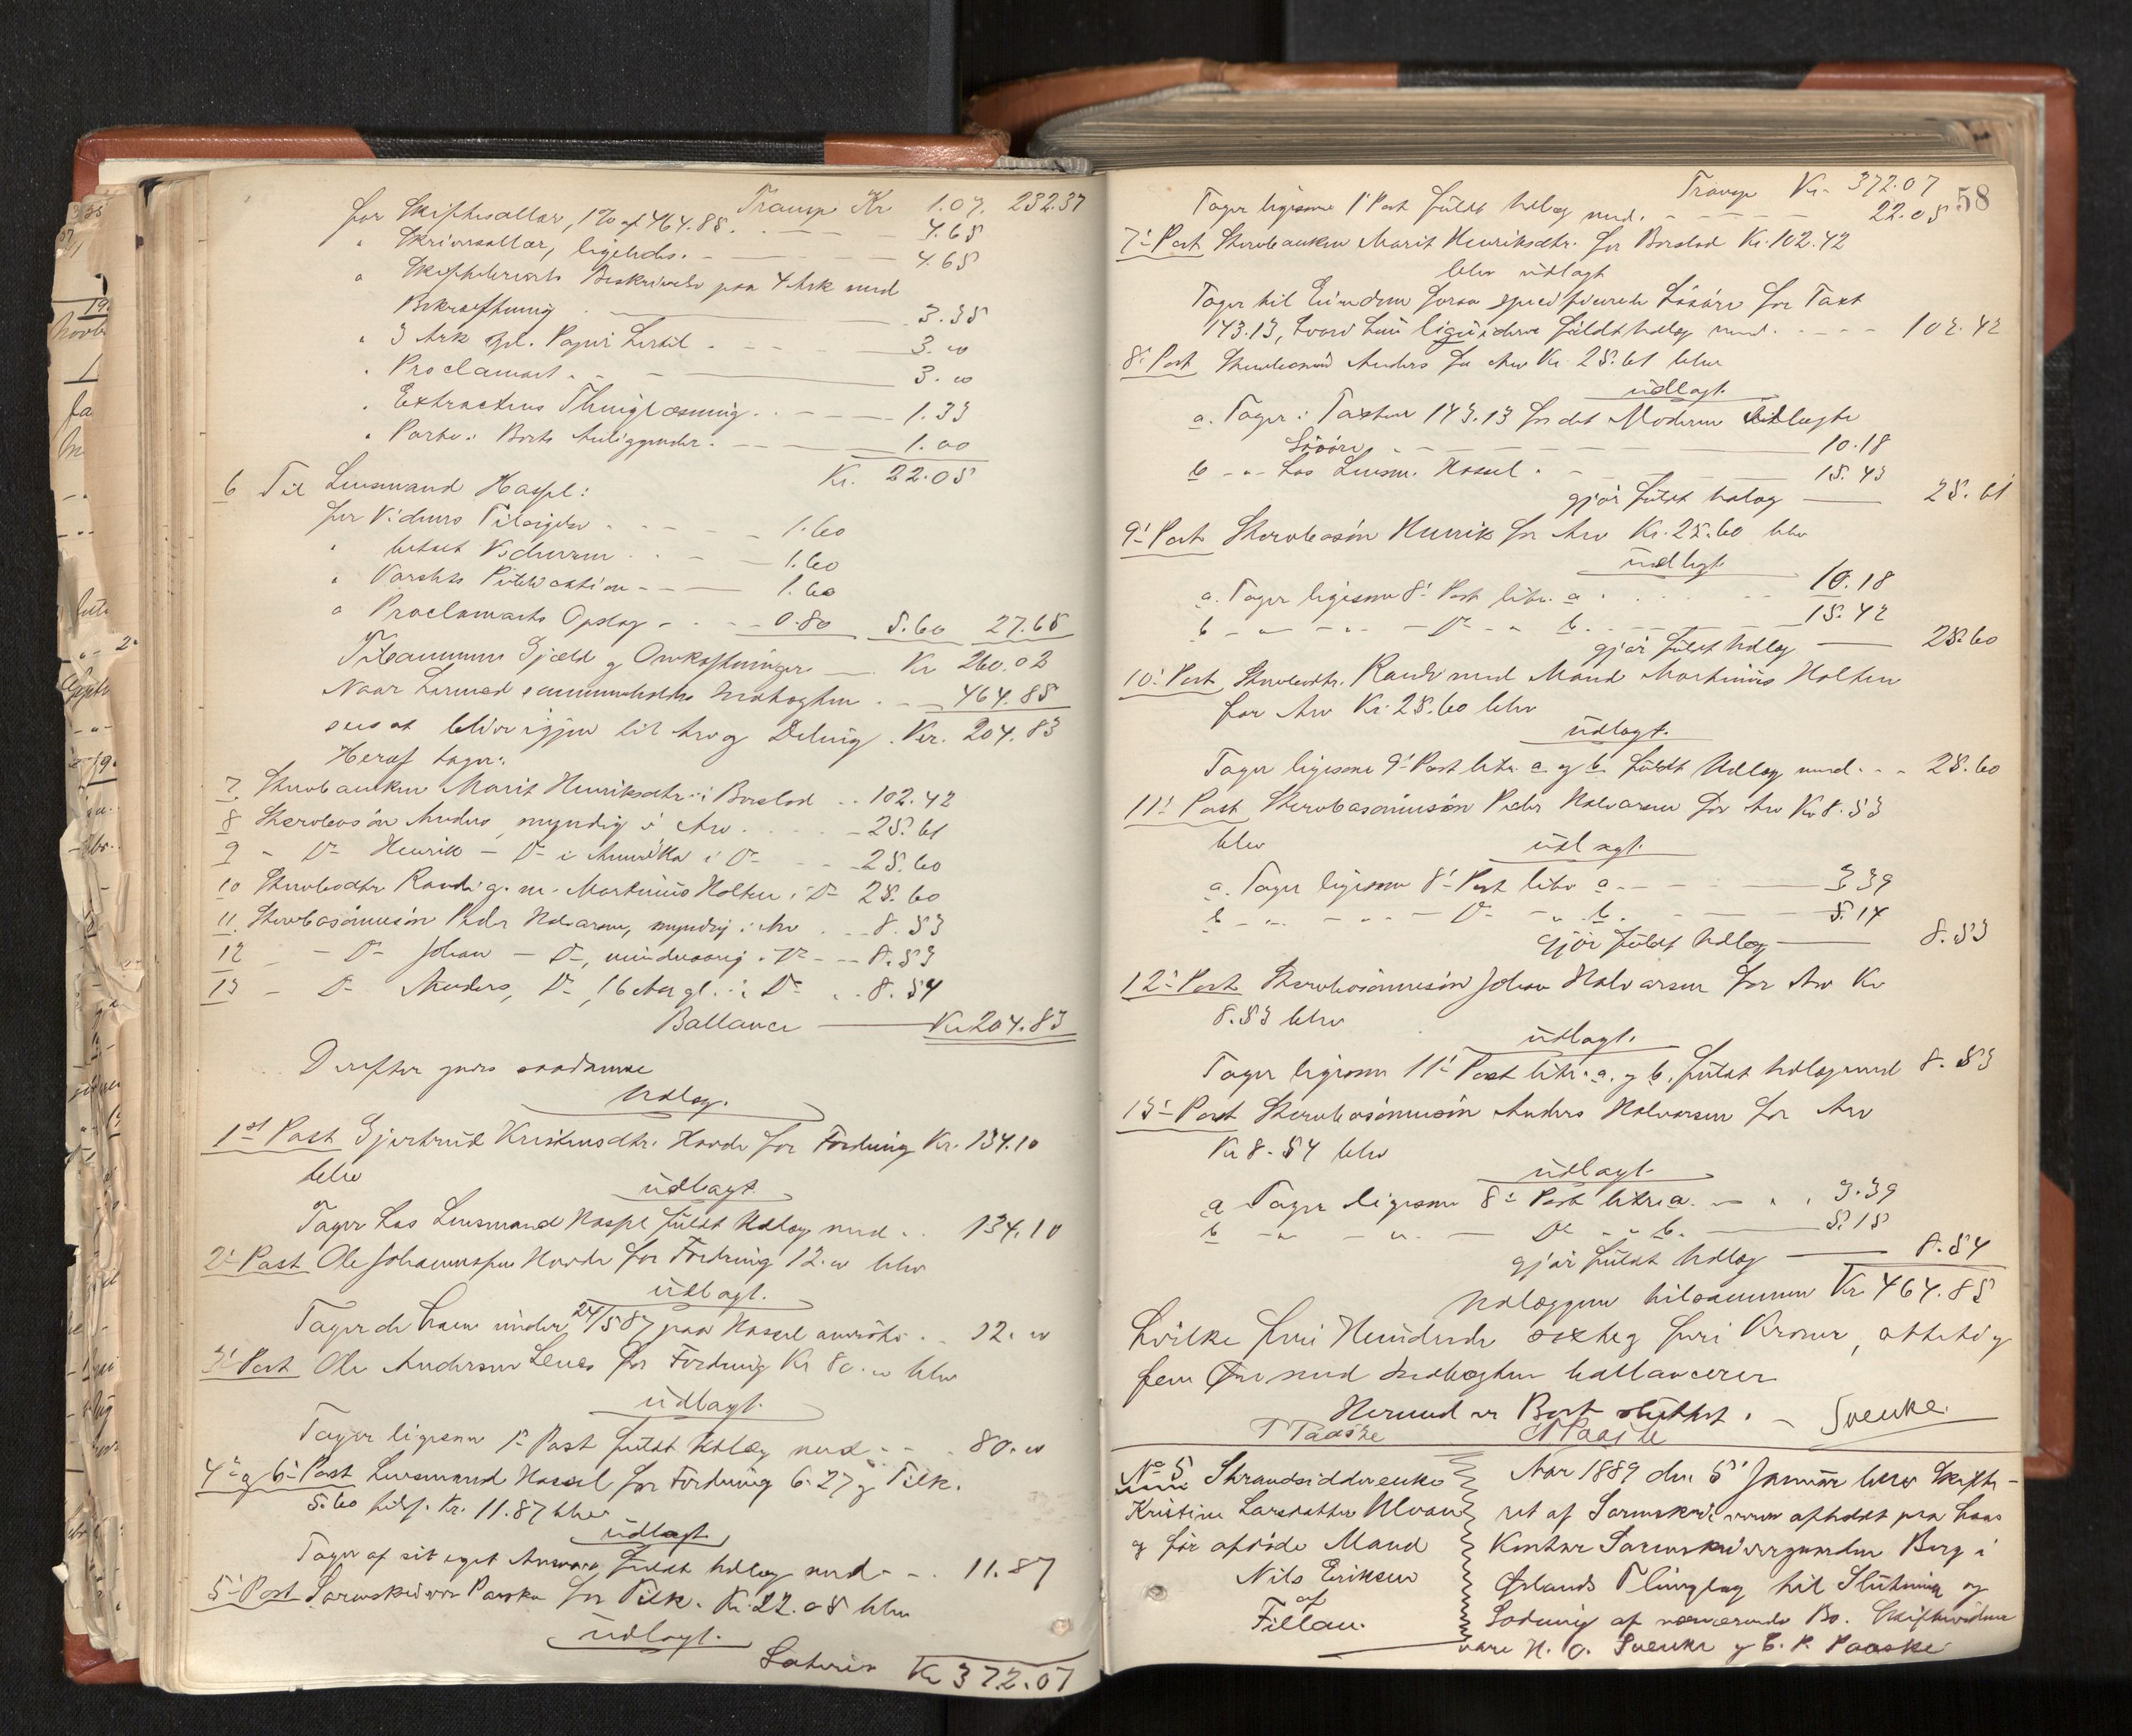 Transp Kr 1.07. 232.37
for Skiftesallær, 1% af 464.85. 4.65
" Skriversallær, ligeledes. 4.65
" Skiftebrevets Beskrivelse paa 4 Ark med
Bekræftning 3.35
" 3 Ark gjl. Papir hertil. 3.00
" Proclamaet. 3.00
" Extractens Thinglæsning. 1.33
" Porto i Boets Anliggender. 1.00
Kr. 22.05
6 Til Lensmand Hassel:
for Vidners Tilsigelse 1.60
" betalt Vidnerne 1.60
" Varslets Publication 1.60
" Proclamaets Opslag 0.80 5.60 27.65
Tilsammen Gjæld og Omkostninger Kr 260.02
Naar hermed sammenholdes Indtægten 464.85
sees at blive igjen til Arv og Deling. Kr. 204.83
Heraf tager:
7 Sterboenken Marit Henriksdtr. i Boeslod 102.42
8 Sterbosøn Anders, myndig i Arv 25.61
9 - Do Henrik - Do i Amerika i Do 25.60
10 Sterbodtr Randi g. m. Martinus Holten i Do 25.60
11 Sterbosønnesøn Peder Halvorsen, myndig i Arv 8.53
12 - Do Johan - Do, mindreaarig i Do 8.53
13 - Do Anders, Do, 16 Aar gl. i Do 8.54
Ballance Kr 204.83
Derefter gjøres saadanne
Udlæg.
1st Post Gjertrud Kristensdtr. Hovde for Fordring Kr. 134.10
blev
udlagt
Tager hos Lensmand Hassel fuldt Udlæg med 134.10
2' Post Ole Johannessen Hovde for Fordring 12.00 blev
udlagt.
Tager de ham under 24/5 87 paa Hassel anviste 12.00
3' Post Ole Andersen Lenes for Fordring Kr 80.00 blev
udlagt.
Tager ligesom 1' Post fuldt Udlæg med 80.00
4' og 6' Post Lensmand Hassel for Fordring 6.27 og Tilk.
5.60 tils. Kr. 11.87 blev
udlagt
Tager af sit eget Ansvar fuldt Udlæg med 11.87
5' Post Sorenskriver Paaske for Tilk. Kr. 22.05 blev
udlagt.
Lateris Kr 372.07
58
Transp Kr. 372.07
Tager ligesom 1' Post fuldt Udlæg med. 22.05
7' Post Sterboenken Marit Henriksdtr. for Boeslod Kr. 102.42
blev udlagt
Tager til Eiendom foran specificerede Løsøre for Taxt
143.13, hvori hun liqviderer fuldt Udlæg med. 102.42
8' Post Sterbosønnen Anders for Arv Kr. 25.61 blev
udlagt.
a. Tager i Taxten 143.13 for det Moderen udlagte
Løsøre 10.18
b - " - hos Lensm. Hassel. 15.43
gjør fuldt Udlæg 25.61
9' Post Sterbosøn Henrik for Arv Kr. 25.60 blev
udlagt
a. Tager ligesom 8' Post litr. a 10.18
b - " - " - Do - " b. 15.42
gjør fuldt Udlæg 25.60
10' Post Sterbodtr. Randi med Mand Martinus Holten
for Arv Kr. 25.60 blev
udlagt.
Tager ligesom 9' Post litr. a og b fuldt Udlæg med 25.60
11' Post Sterbosønnesøn Peder Halvorsen for Arv Kr 8.53
blev udlagt.
a. Tager ligesom 8' Post litr a 3.39
b - " - " - Do - " b. 5.14
gjør fuldt Udlæg 8.53
12' Post Sterbosønnesøn Johan Halvorsen for Arv Kr
8.53 blev
udlagt.
Tager ligesom 11' Post litr. a. og b. fuldt Udlæg med 8.53
13' Post Sterbosønnesøn Anders Halvorsen for Arv
Kr 8.54 blev
udlagt.
a Tager ligesom 8' Post litr. a. 3.39
b - " - " - Do - " b. 5.15
gjør fuldt Udlæg 8.54
Udlæggene tilsammen Kr 464.85
hvilke fire Hundrede sexti og fire Kroner, otteti og
fem Øre med Indtægten ballancerer
Hermed er Boet sluttet.
T Paaske
Svenke
No 5. Strandsidderenke
Kristine Larsdatter Ulvan
og før afdøde Mand
Nils Eriksen
af
Fillan.
Aar 1889 den 5' Januar blev Skifte-
ret af Sorenskriveren afholdt paa hans
Kontor Sorenskrivergaarden Berg i
Ørlands Thinglag til Slutning og
Lodning af nærværende Bo. Skiftevidner
vare N. O. Svenke og C. P. Paaske